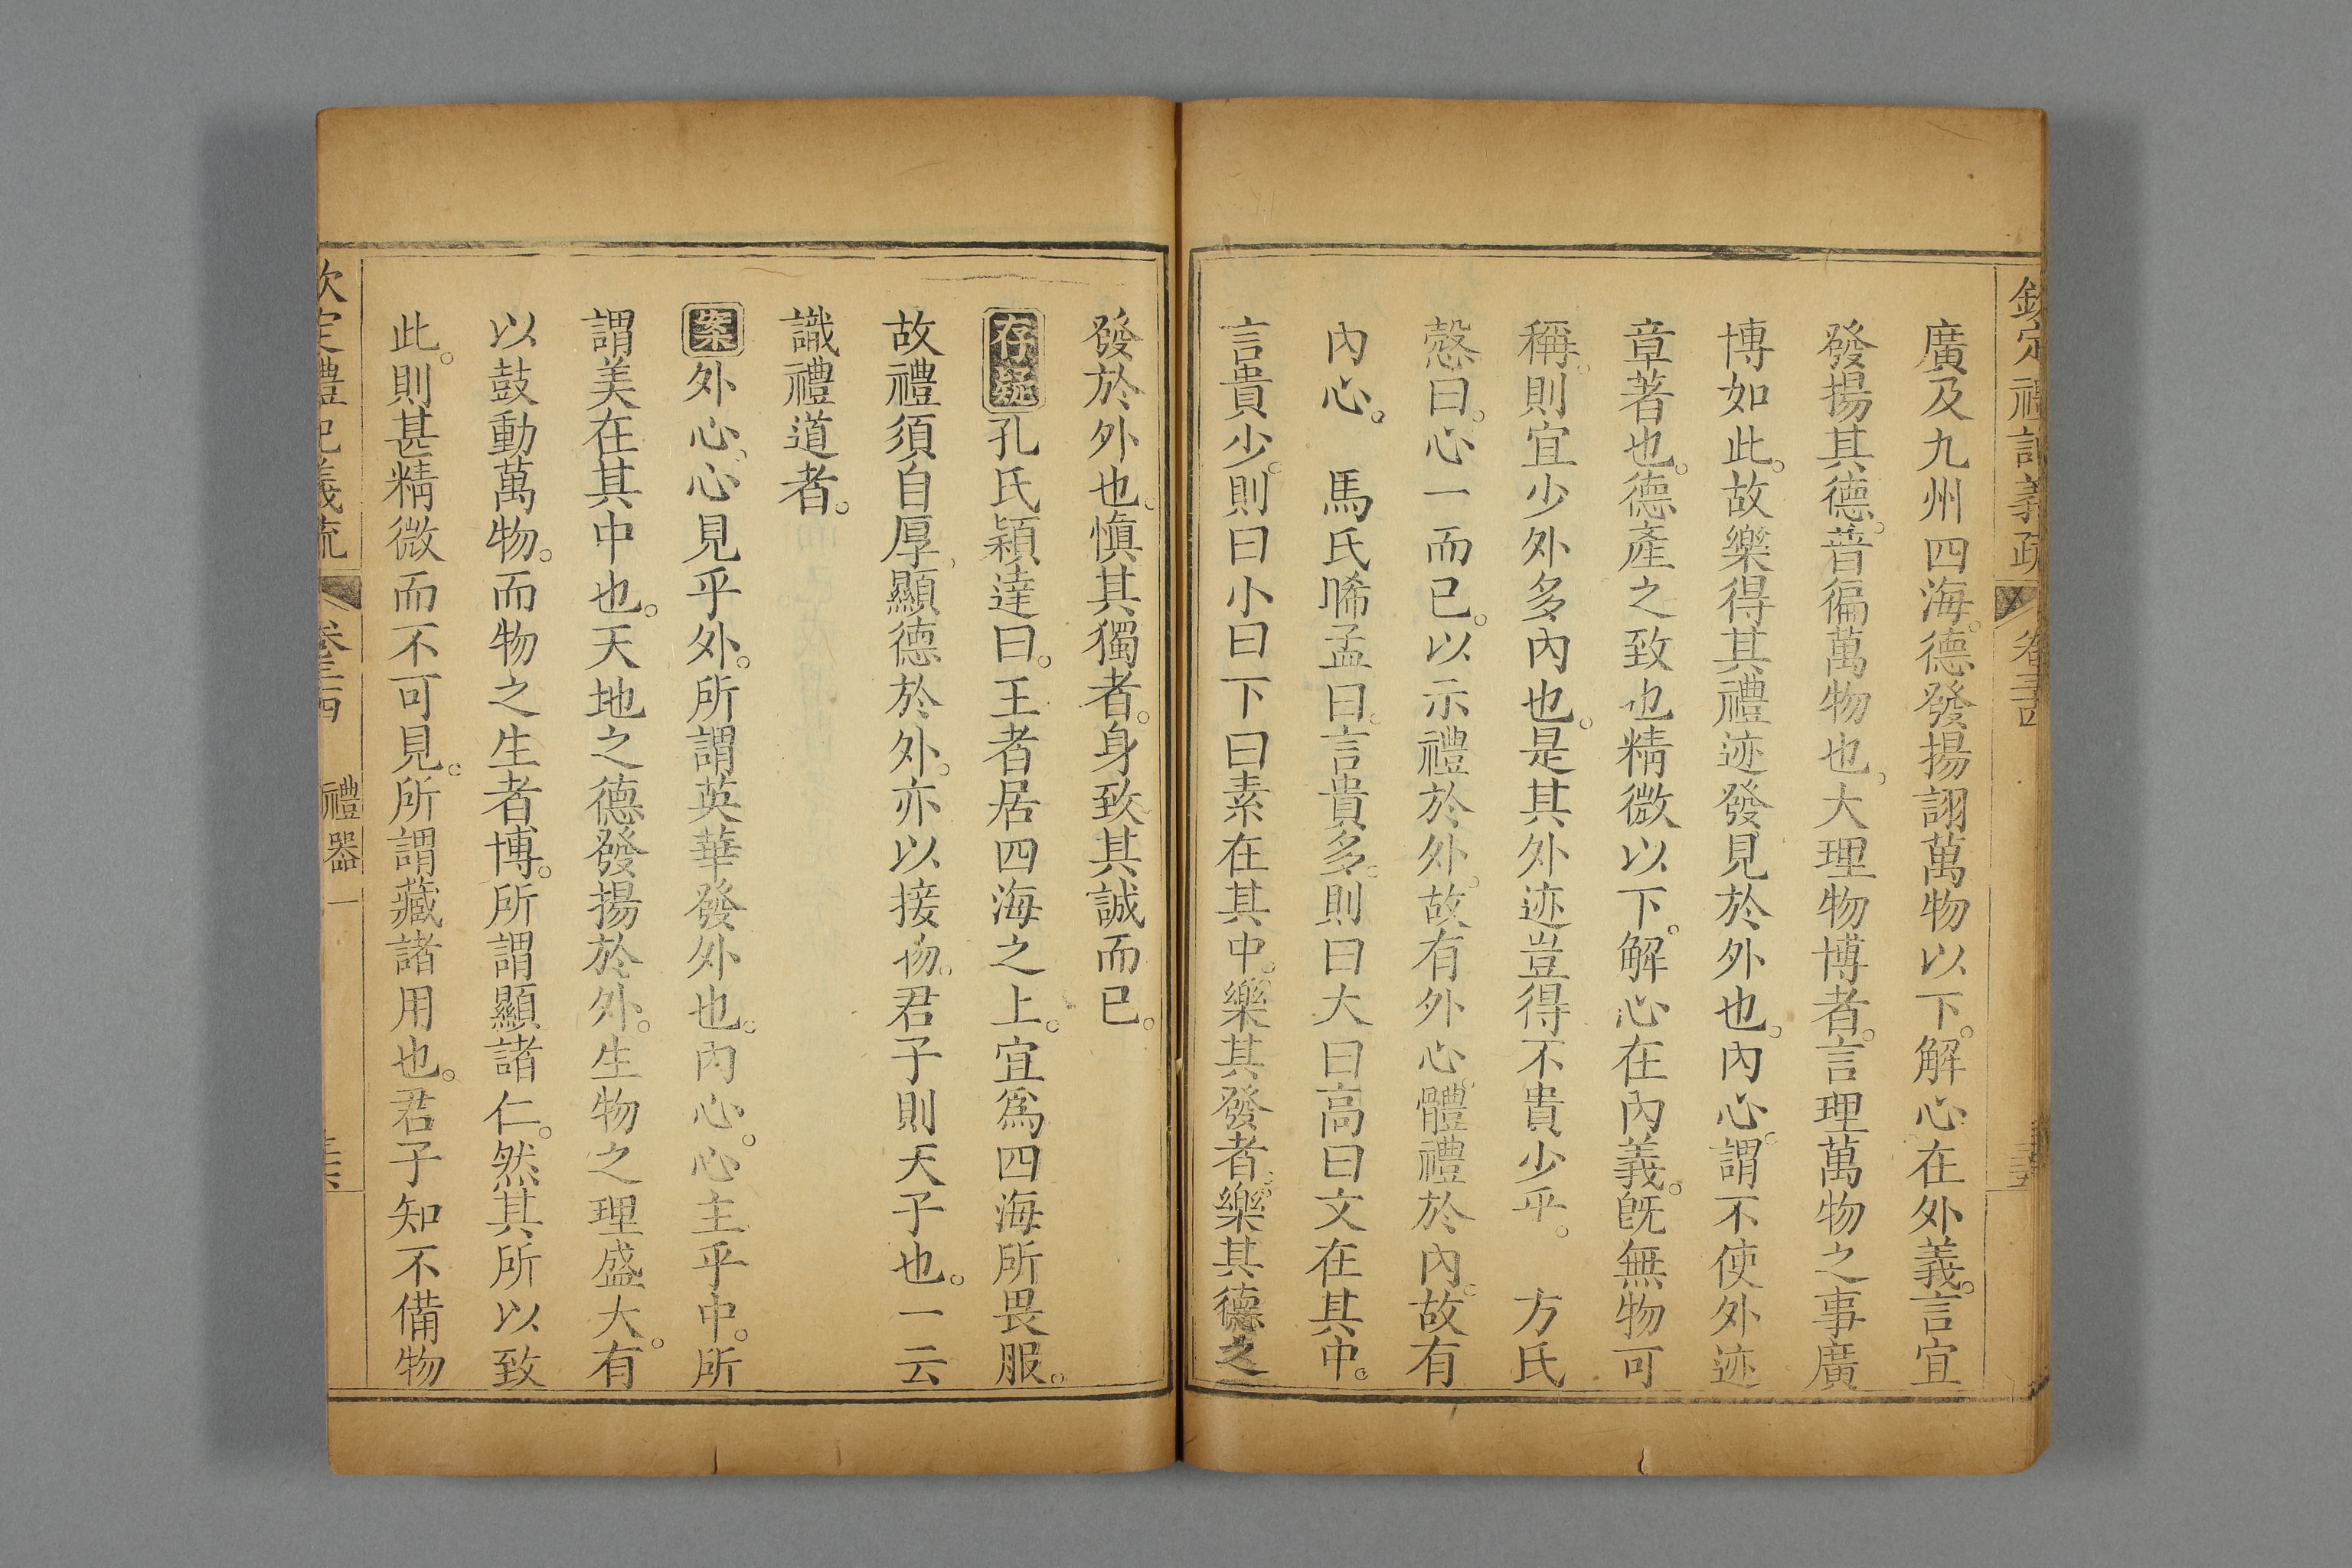 欽定禮記義疏 卷三十四
廣及九州四海。德發揚詡萬物以下。解心在外義。言宜
發揚其德。普徧萬物也。大理物博者。言理萬物之事廣
博如此。故樂得其禮迹發見於外也。內心。謂不使外迹
章著也。德產之致也精微以下。解心在內義。旣無物可
稱。則宜少外多內也。是其外迹豈得不貴少乎。 方氏
慤曰。心一而已。以示禮於外。故有外心。體禮於內。故有
內心。 馬氏晞孟曰。言貴多。則曰大曰高曰文在其中。
言貴少。則曰小曰下曰素在其中。樂其發者。樂其德之
發於外也。愼其獨者。身致其誠而已。
存疑孔氏穎達曰。王者居四海之上。宜爲四海所畏服。
故禮須自厚。顯德於外。亦以接物。君子則天子也。一云
識禮道者。
案外心。心見乎外。所謂英華發外也。內心。心主乎中。所
謂美在其中也。天地之德發揚於外。生物之理盛大。有
以鼓動萬物。而物之生者博。所謂顯諸仁。然其所以致
此。則甚精微而不可見。所謂藏諸用也。君子知不備物
欽定禮記義疏 卷三十四 禮器一